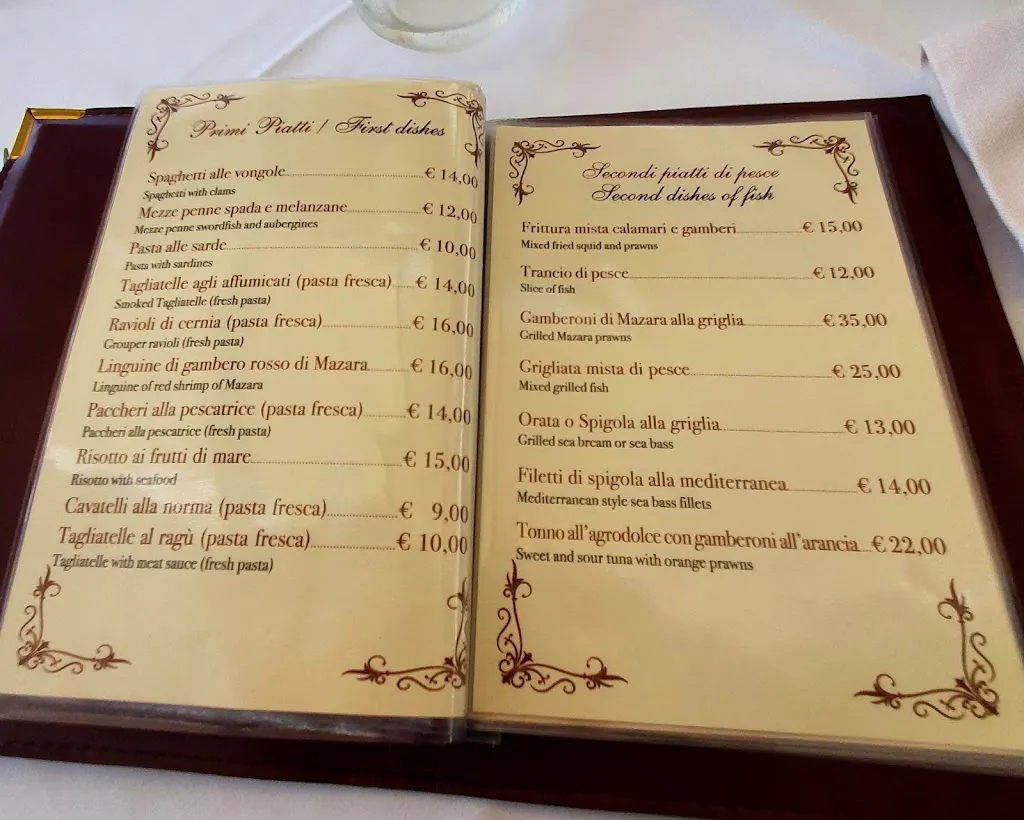 Primi Piatti / First dishes
Spaghetti alle vongole € 14,00
Spaghetti with clams
Mezze penne spada e melanzane € 12,00
Mezze penne swordfish and aubergines
Pasta alle sarde € 10,00
Pasta with sardines
Tagliatelle agli affumicati (pasta fresca) € 14,00
Smoked Tagliatelle (fresh pasta)
Ravioli di cernia (pasta fresca) € 16,00
Grouper ravioli (fresh pasta)
Linguine di gambero rosso di Mazara € 16,00
Linguine of red shrimp of Mazara
Paccheri alla pescatrice (pasta fresca) € 14,00
Paccheri alla pescatrice (fresh pasta)
Risotto ai frutti di mare € 15,00
Risotto with seafood
Cavatelli alla norma (pasta fresca) € 9,00
Tagliatelle al ragù (pasta fresca) € 10,00
Tagliatelle with meat sauce (fresh pasta)
Secondi piatti di pesce
Second dishes of fish
Frittura mista calamari e gamberi € 15,00
Mixed fried squid and prawns
Trancio di pesce € 12,00
Slice of fish
Gamberoni di Mazara alla griglia € 35,00
Grilled Mazara prawns
Grigliata mista di pesce € 25,00
Mixed grilled fish
Orata o Spigola alla griglia € 13,00
Grilled sea bream or sea bass
Filetti di spigola alla mediterranea € 14,00
Mediterranean style sea bass fillets
Tonno all'agrodolce con gamberoni all'arancia € 22,00
Sweet and sour tuna with orange prawns